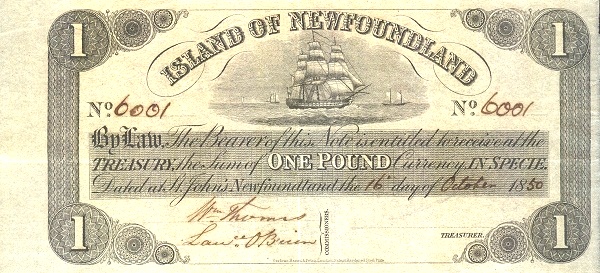 1 ISLAND OF NEWFOUNDLAND 1
No. 6001 No. 6001
By Law, The Bearer of this Note is entitled to receive at the
TREASURY, the Sum of ONE POUND Currency, IN SPECIE.
Dated at St. John's Newfoundland the 16th day of October 1850
Wm Thomas
Lawce O'Brien
COMMISSIONERS.
TREASURER.
1 1